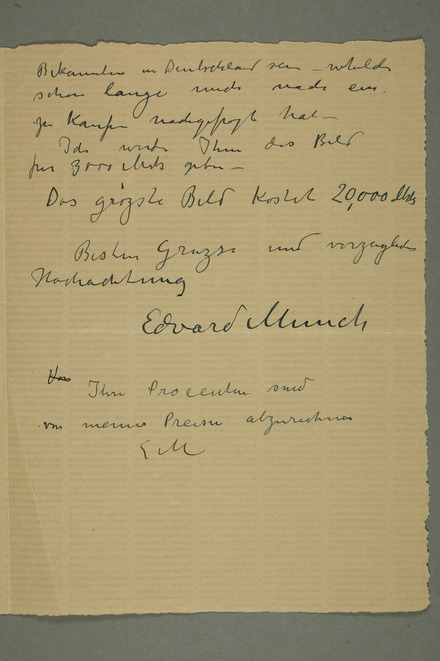 Bekannten in Deutschland sein – welche
schon lange mich nach ein
zu Kaufen nachgefragt hat –
Ich werde Ihm das Bild
für 3000 Mk geben –
Das grözste Bild kostet 20,000 Mk
Besten Gruzse und vorzuglich
Hochachtung
Edvard Munch
Ihre Procenten sind
von meine Preise abzurechnen
E M